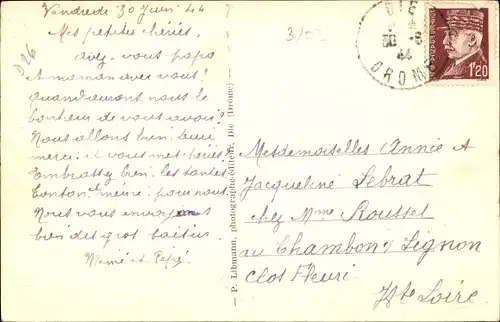 Vendredi 30 Juin 44
Mes petites chéries.
avez-vous papa
et maman avec vous?
quand aurons nous le
bonheur de vous avoir?
Nous allons bien, leur
merci et vous mes chéries
Embrassez bien les tantes
tonton et mémé pour nous
Nous vous envoyons
bien des gros baisers
Mémé et Pépé
D26
3/02
P. Libmann, photographe-éditeur, Die (Drôme)
DIE
30 -6
44
DROME
1f20
Mesdemoiselles Annie et
Jacqueline Lebrat
chez Mme Rousset
au Chambon s/ Lignon
Clos Fleuri
Hte Loire